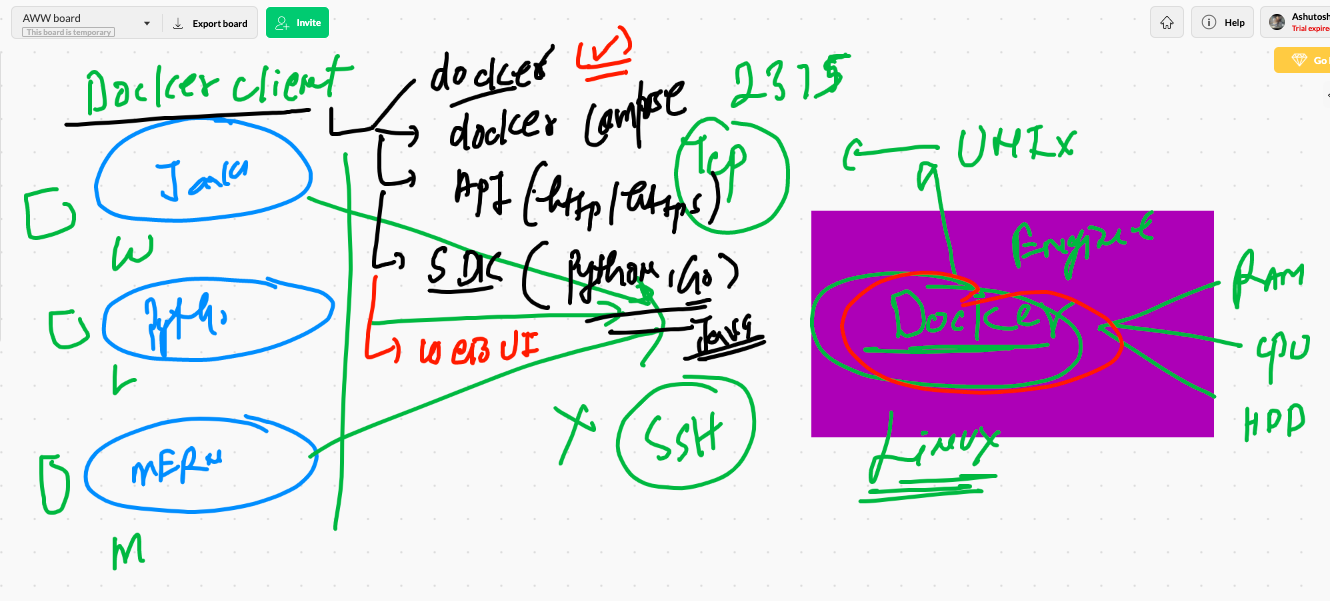 AWW board
This board is temporary
Export board
Invite
Help
Ashutosh
Trial expire
Go
Docker client
docker
docker compose
API (http/https)
SDK (Python, Go)
Java
WEB UI
2375
TCP
SSH
X
UNIX
Engine
Docker
Linux
RAM
CPU
HDD
Java
W
L
MERN
M